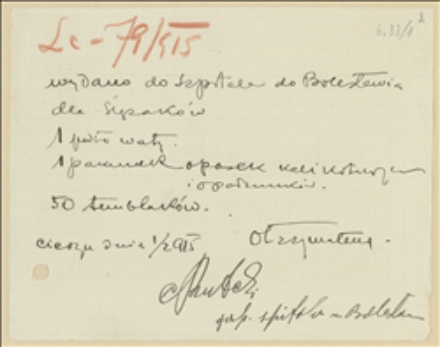 Lc - 79/915
6.33/1 2
wydano do Szpitala do Bolesławia
dla Ślązaków
1 pudło waty.
1 pakunek opasek kalikotowych
i opatrunków.
50 temblaków.
Cieszyn dnia 1/2 915 Otrzymałem.
szpitala w